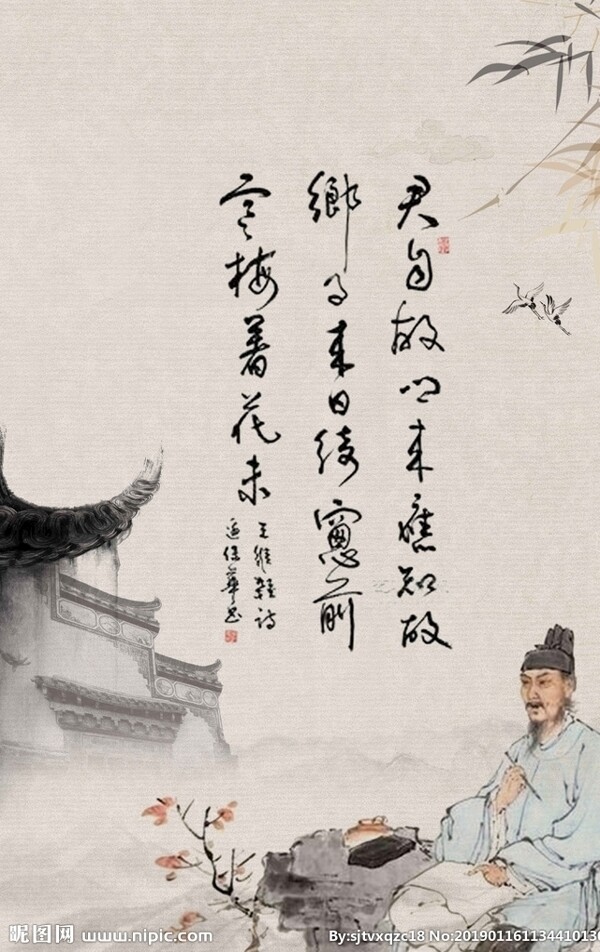 君自故鄉来應知故
鄉事来日綺窻前
寒梅著花未
王維雜诗
昵图网 www.nipic.com
By:sjtvxqzc18 No:20190116113441013